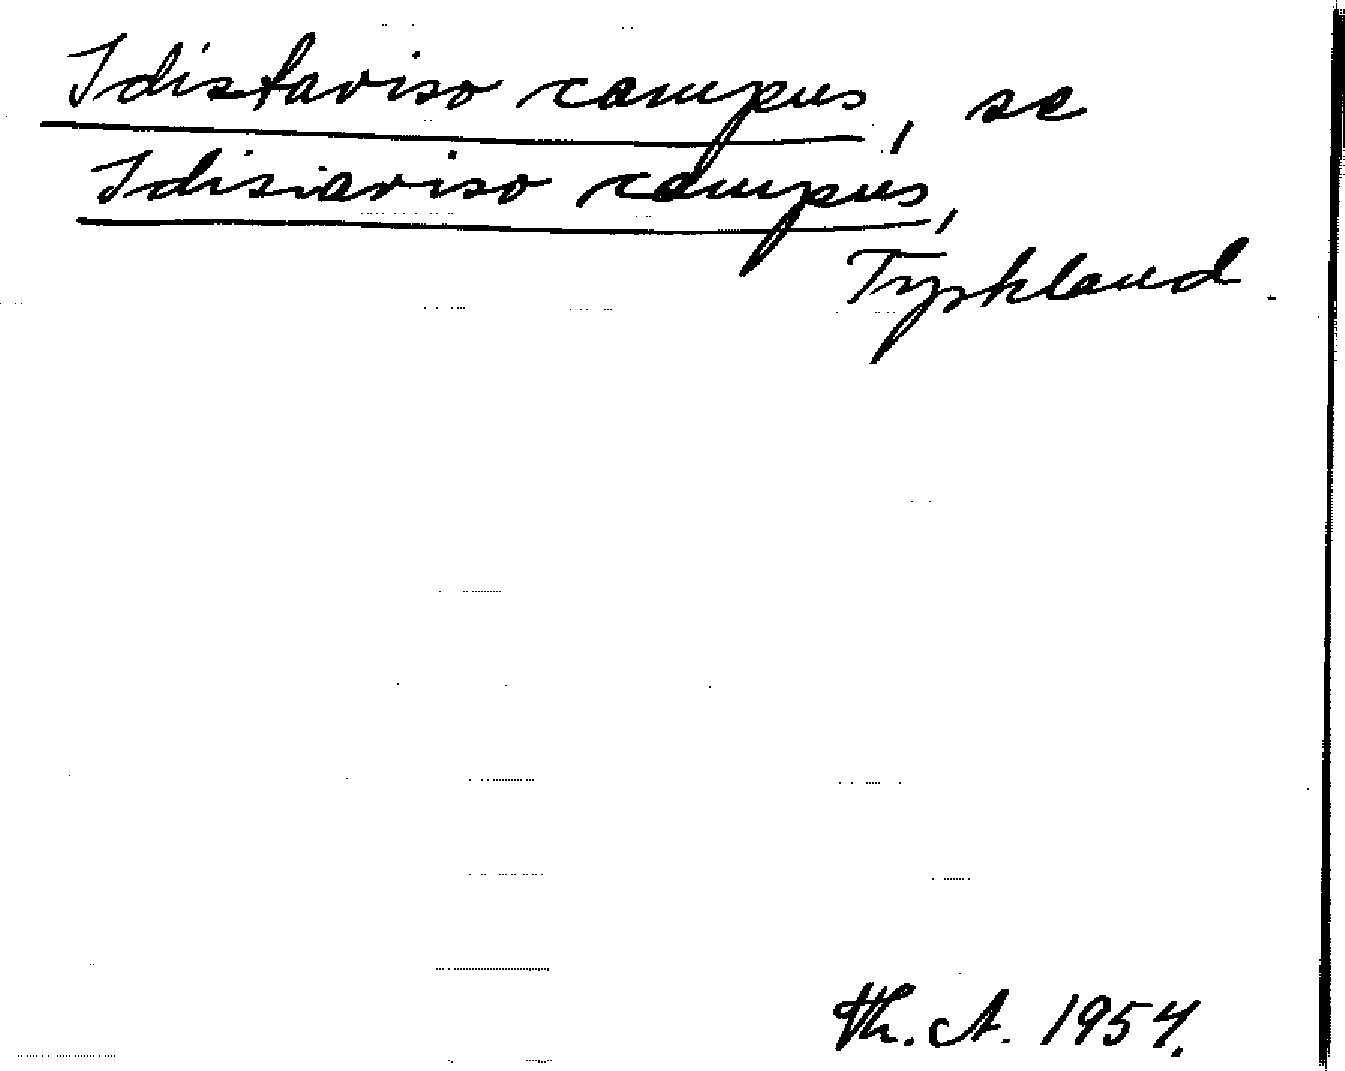 Idistaviso campus, se
Idisiaviso campus,
Tyskland.
Th. A. 1954.